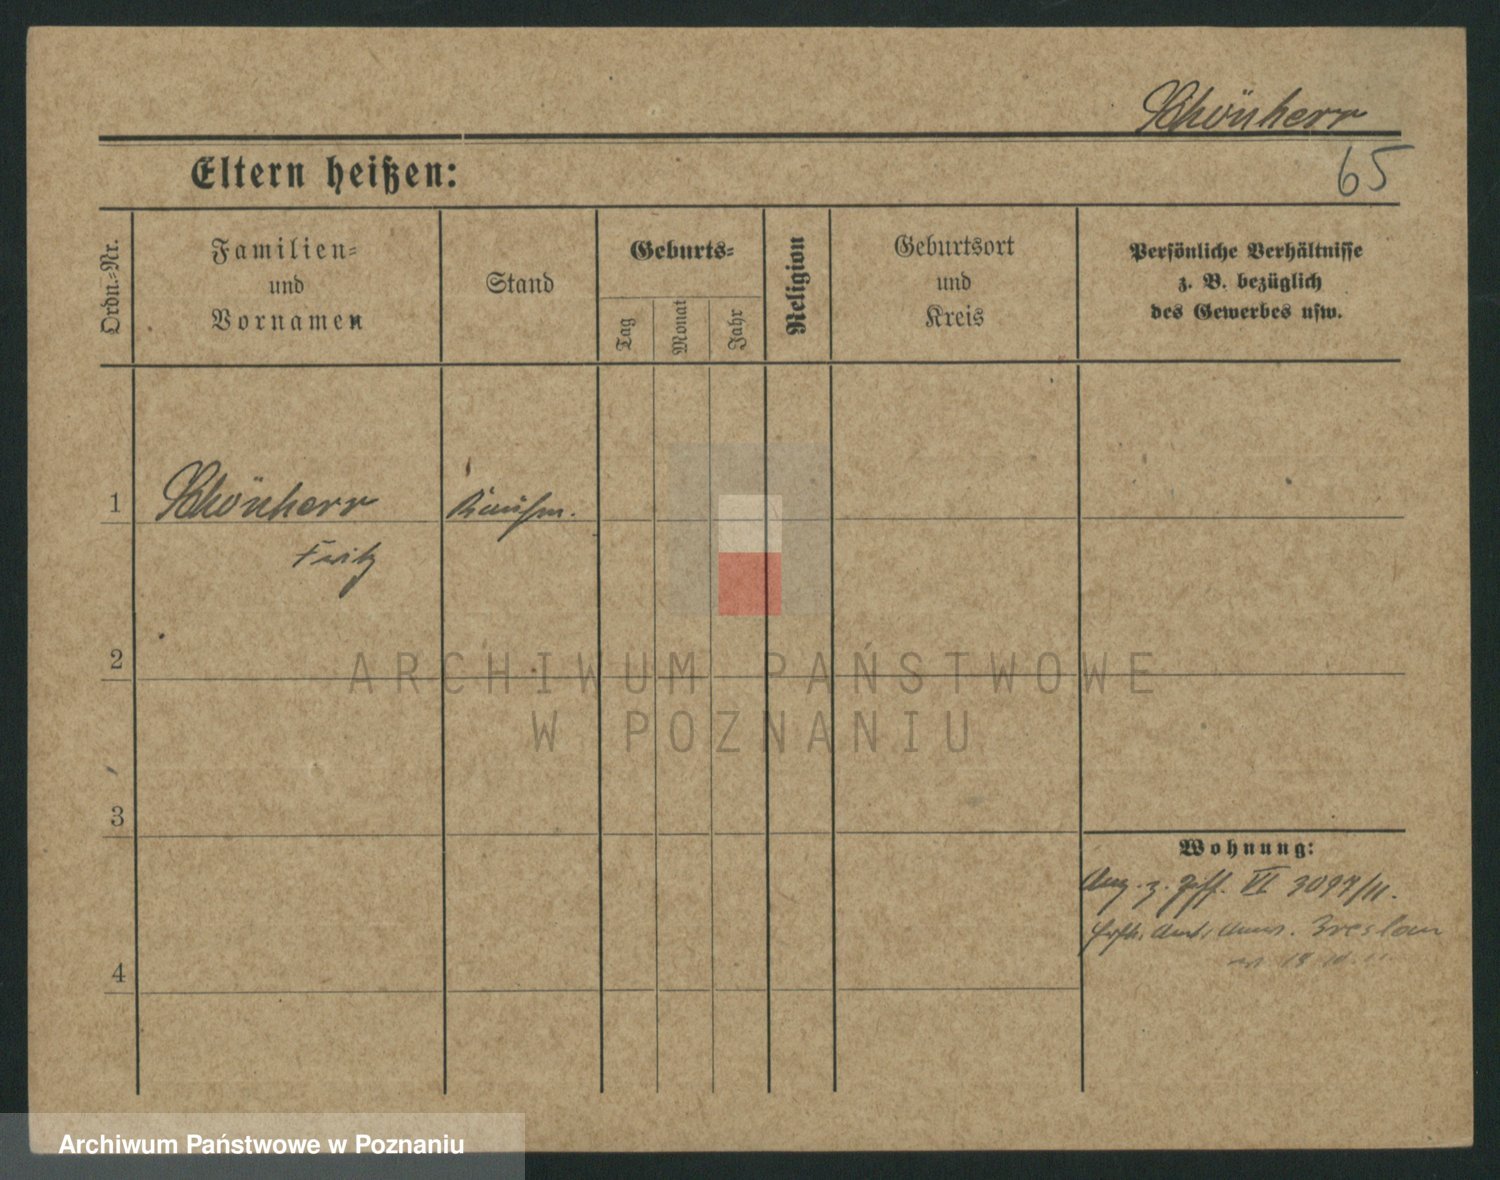 Schönherr
65
Eltern heißen:
Ordn.-Nr.
Familien-
und
Vornamen
Stand
Geburts-
Tag
Monat
Jahr
Religion
Geburtsort
und
Kreis
Persönliche Verhältnisse
z. B. bezüglich
des Gewerbes usw.
1 Schönherr Kaufm.
Fritz
2
ARCHIWUM PAŃSTWOWE
W POZNANIU
3
Wohnung:
z. Ziff. VI 3097/11.
Breslau
4
Archiwum Państwowe w Poznaniu